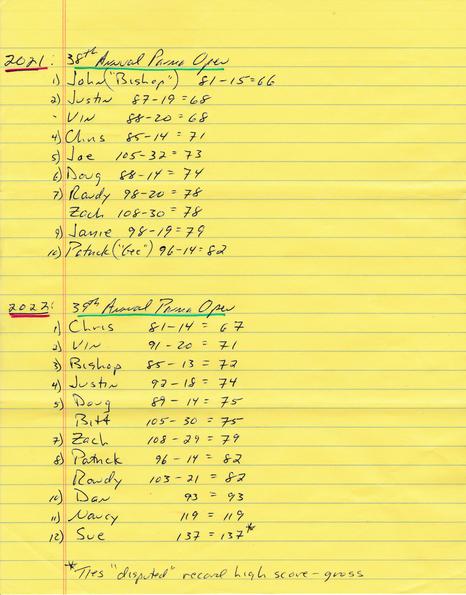 2021: 38th Annual Parma Open
1) John ("Bishop") 81-15=66
2) Justin 87-19=68
- Vin 88-20=68
4) Chris 85-14=71
5) Joe 105-32=73
6) Doug 88-14=74
7) Randy 98-20=78
Zach 108-30=78
9) Jamie 98-19=79
10) Patrick ("Gee") 96-14=82
2022: 39th Annual Parma Open
1) Chris 81-14 = 67
2) Vin 91-20 = 71
3) Bishop 85-13 = 72
4) Justin 92-18 = 74
5) Doug 89-14 = 75
Bitt 105-30 = 75
7) Zach 108-29 = 79
8) Patrick 96-14 = 82
Randy 103-21 = 82
10) Dan 93 = 93
11) Nancy 119 = 119
12) Sue 137 = 137*
*Ties "disputed" record high score-gross